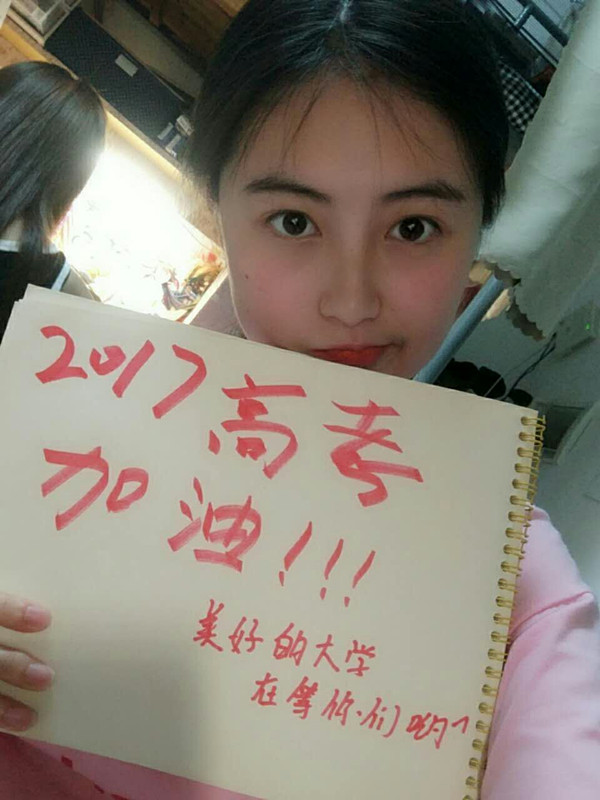 2017高考
加油!!!
美好的大学
在等你们哟^